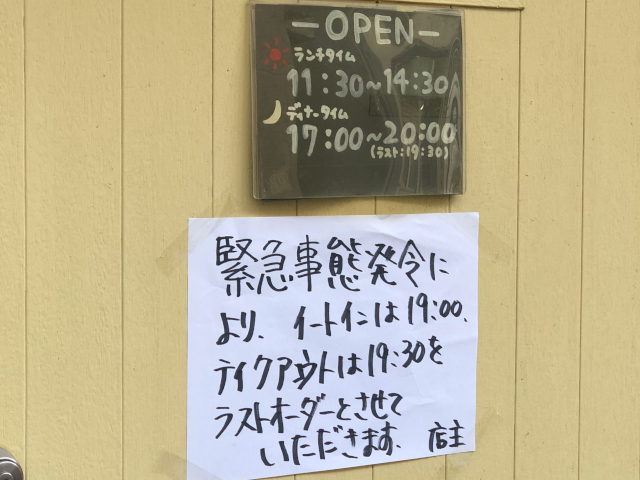 -OPEN-
ランチタイム
11:30~14:30
ディナータイム
17:00~20:00
(ラスト:19:30)
緊急事態発令に
より、イートインは19:00、
テイクアウトは19:30を
ラストオーダーとさせて
いただきます、 店主